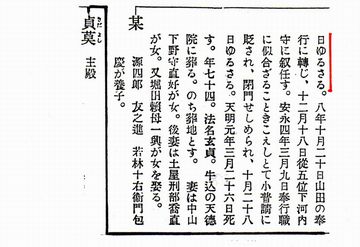 日ゆるさる。八年十月二十日山田の奉
行に轉じ、十二月十八日從五位下河内
守に叙任す。安永四年三月九日奉行職
に似合ざることきこえしとて小普請に
貶され、閉門せしめられ、十月二十八
日ゆるさる。天明元年三月二十六日死
す。年七十四。法名玄貞。牛込の天德
院に葬る。のち葬地とす。 妻は中山
下野守直好が女。後妻は土屋刑部喬直
が女。又堀田賴母一興が女を娶る。
某
源四郎 友之進 若林十右衞門包
慶が養子。
貞莫
さだ よし
主殿